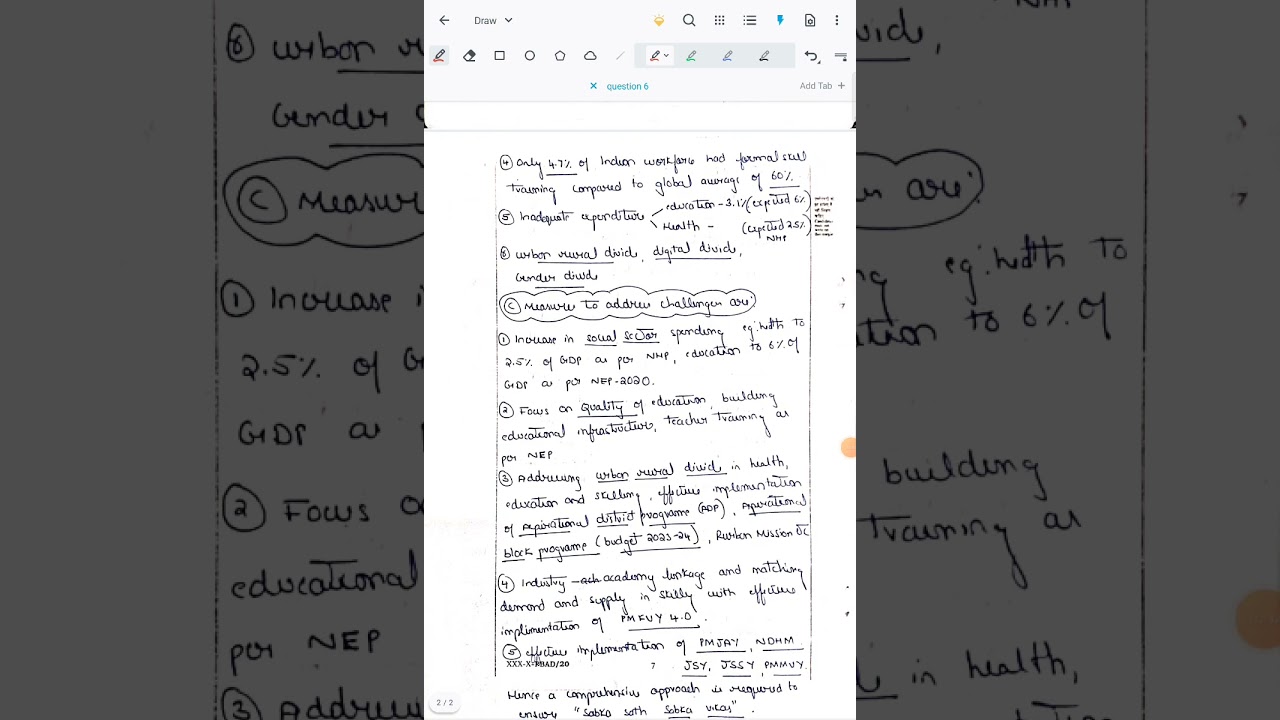 Draw
question 6
Add Tab +
④ Only 4.7% of Indian workforce had formal skill
training compared to global average of 60%.
⑤ Inadequate expenditure education - 3.1% (expected 6%)
Health - (expected 2.5% NHP)
⑥ urban rural divide, digital divide,
Gender divide
Ⓒ Measure to address challenges are:
① Increase in social sector spending eg: health to
2.5% of GDP as per NHP, education to 6% of
GDP as per NEP-2020.
② Focus on Quality of education, building
educational infrastructure, teacher training as
per NEP
③ Addressing urban rural divide in health,
education and skilling, effective implementation
of Aspirational district programe (ADP), Aspirational
block programe (budget 2023-24), Rurban Mission etc
④ Industry - academy linkage and matching
demand and supply in skilly with effective
implementation of PMKVY 4.0.
⑤ effective implementation of PMJAY, NDHM
JSY, JSSY, PMMVY.
7
Hence a comprehensive approach is required to
ensure "Sabka sath Sabka vikas".
2 / 2